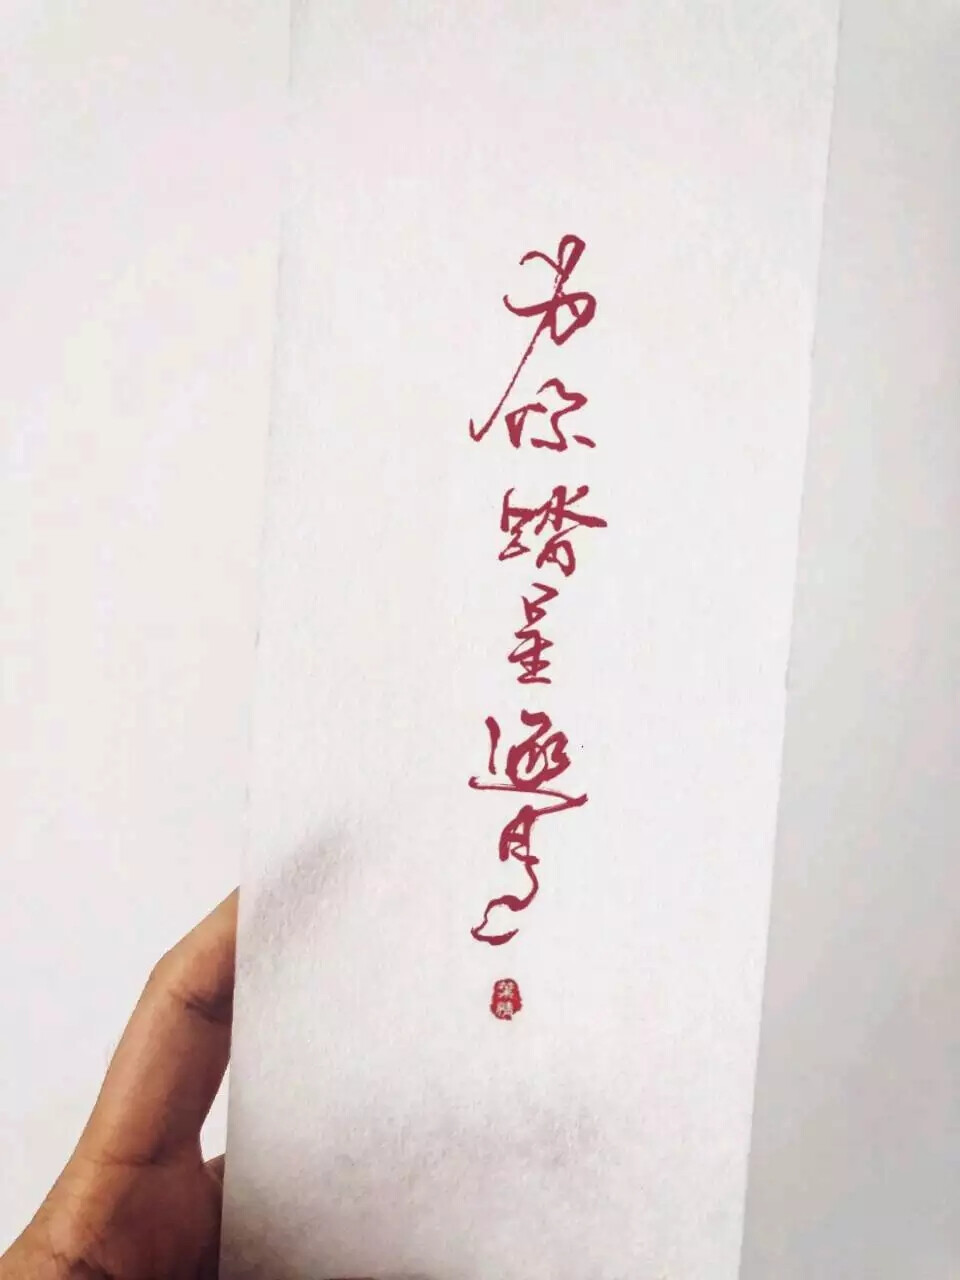 为你踏星逐月